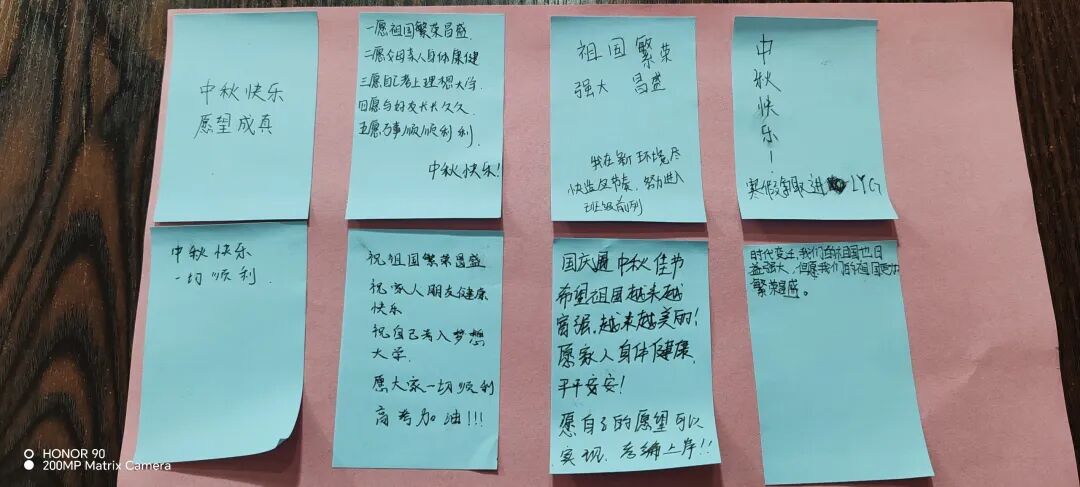 中秋快乐
愿望成真
一愿祖国繁荣昌盛
二愿父母亲人身体康健
三愿自己考上理想大学.
四愿与好友长长久久.
五愿万事顺顺利利.
中秋快乐!
祖国繁荣
强大 昌盛
我在新环境尽
快适应节奏,努力进入
班级前列
中秋快乐!
寒假争取进 LYG
中秋快乐
一切顺利
祝祖国繁荣昌盛
祝家人朋友健康
快乐
祝自己考入梦想
大学.
愿大家一切顺利
高考加油!!!
国庆遇中秋佳节
希望祖国越来越
富强,越来越美的!
愿家人身体健康,
平平安安!
愿自己的愿望可以
实现,考编上岸!!
时代变迁,我们的祖国也日
益强大,但愿我们的祖国更加
繁荣昌盛。
HONOR 90
200MP Matrix Camera